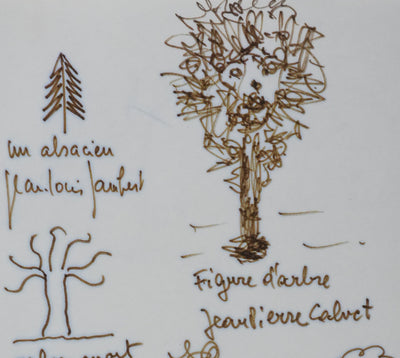 un alsacien
Jean Louis Jambert
Figure d'arbre
Jean Pierre Calvet